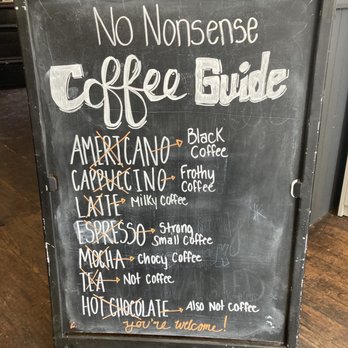 No Nonsense
Coffee Guide
AMERICANO → Black Coffee
CAPPUCCINO → Frothy Coffee
LATTE → Milky Coffee
ESPRESSO → Strong Small Coffee
MOCHA → Chocy Coffee
TEA → Not Coffee
HOT CHOCOLATE → Also Not Coffee
you're welcome!